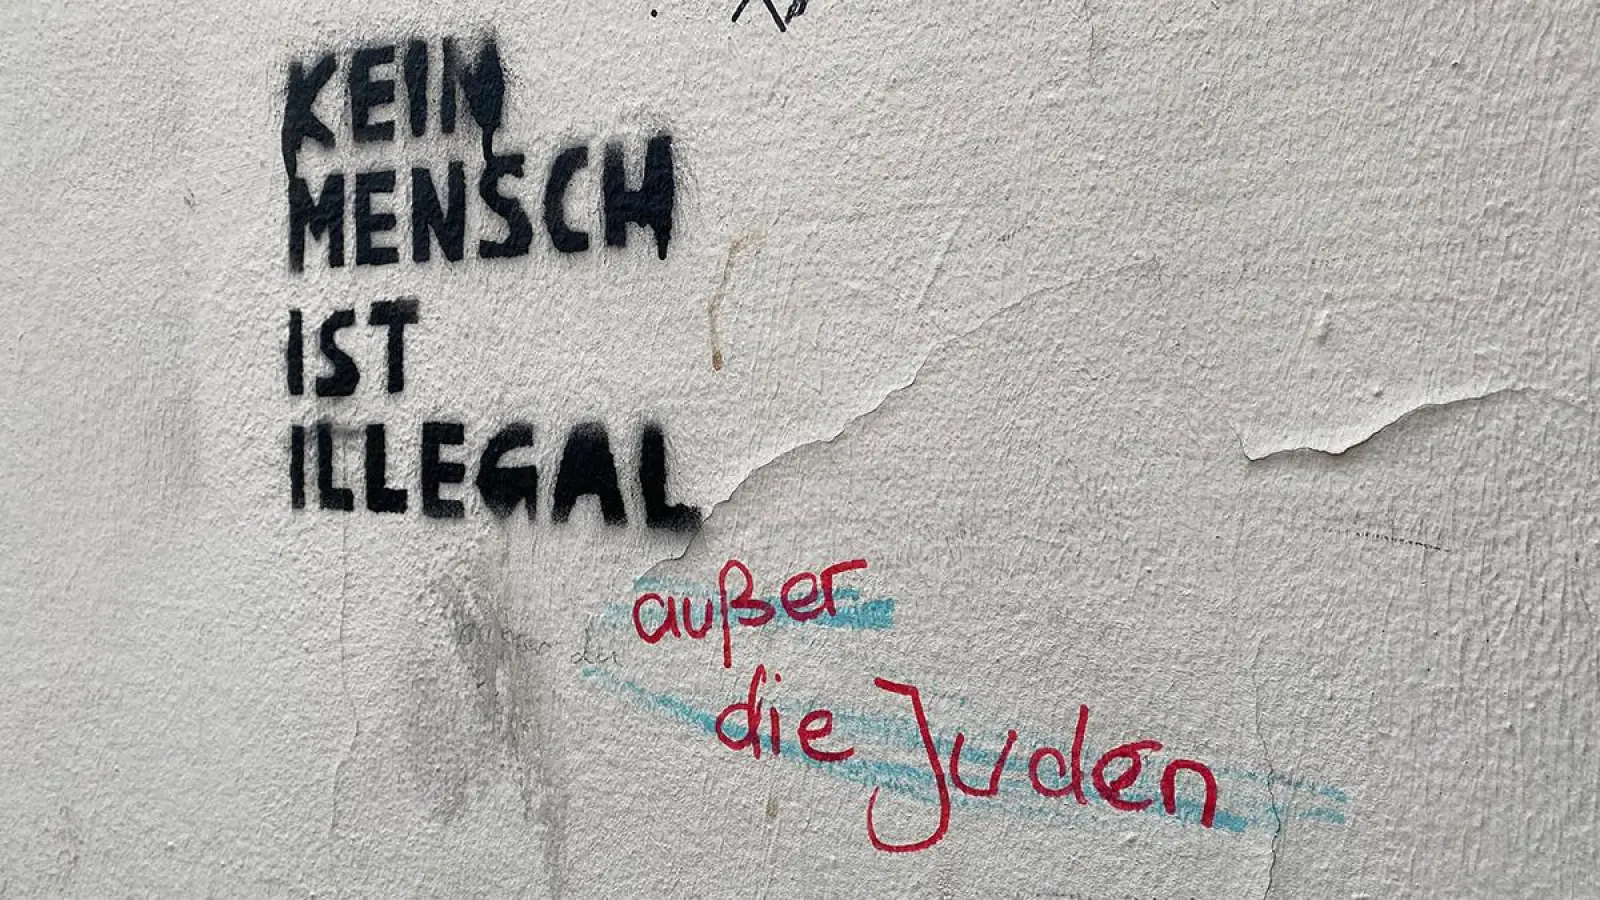 KEIN
MENSCH
IST
ILLEGAL
außer
die Juden